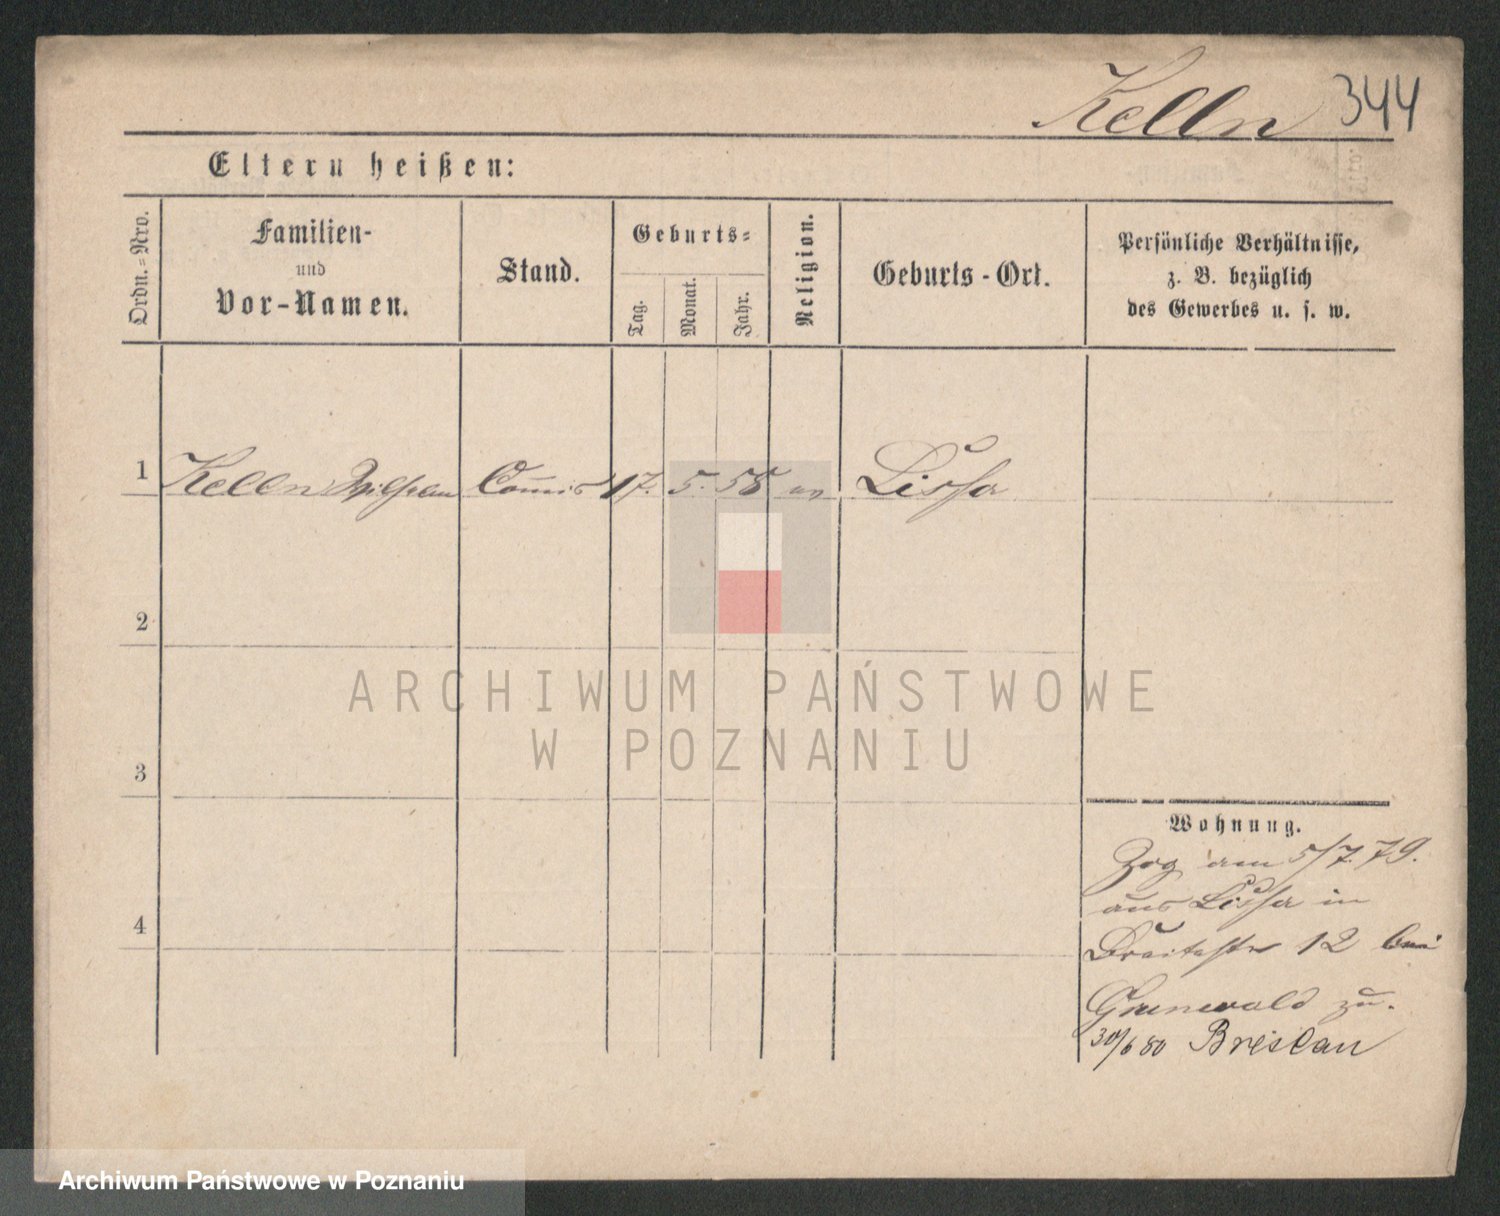 Kelln 344
Eltern heißen:
Ordn.-Nro.
Familien-
und
Vor-Namen.
Stand.
Geburts-
Tag.
Monat.
Jahr.
Religion.
Geburts-Ort.
Persönliche Verhältnisse,
z. B. bezüglich
des Gewerbes u. s. w.
1 Kelln Wilhelm Commis 17. 5. 58 ev Lissa
2
3
4
Wohnung.
Zog am 5/7. 79.
aus Lissa in
Breitestr 12 bei
Grunewald zu.
30/6 80 Breslau
ARCHIWUM PAŃSTWOWE
W POZNANIU
Archiwum Państwowe w Poznaniu